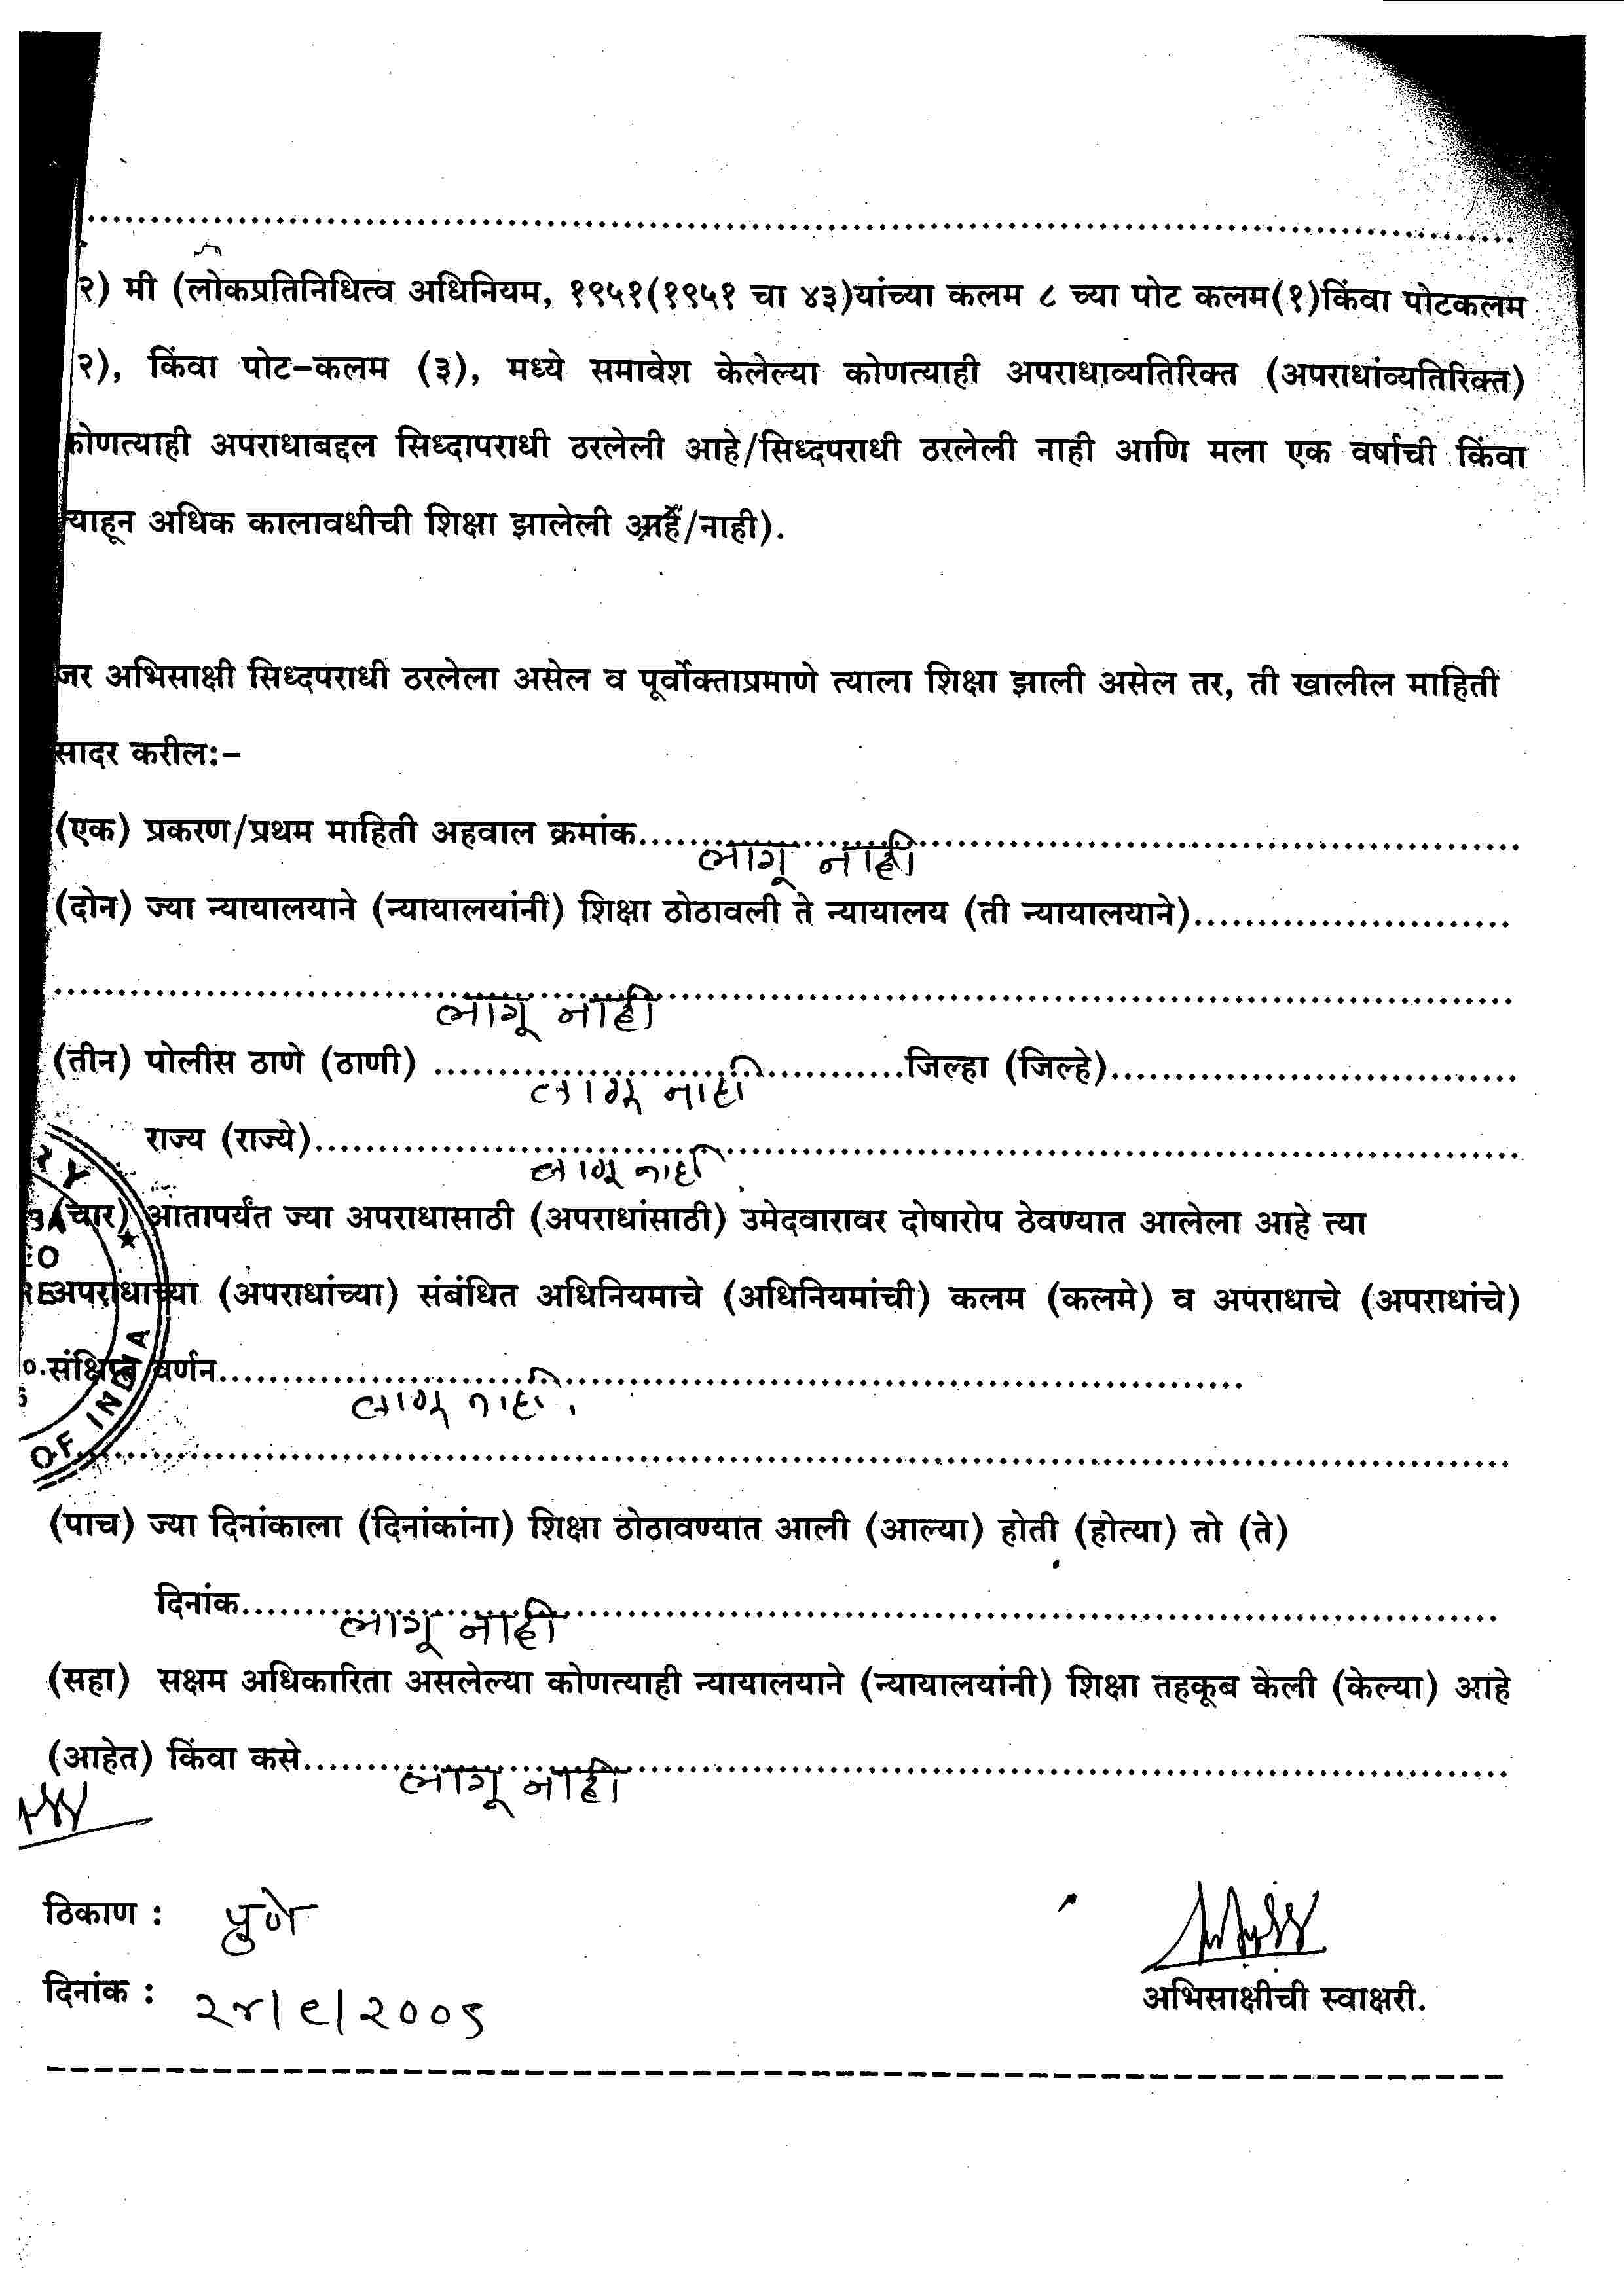 २) मी (लोकप्रतिनिधित्व अधिनियम, १९५१(१९५१ चा ४३)यांच्या कलम ८ च्या पोट कलम(१)किंवा पोटकलम
२), किंवा पोट-कलम (३), मध्ये समावेश केलेल्या कोणत्याही अपराधाव्यतिरिक्त (अपराधांव्यतिरिक्त)
कोणत्याही अपराधाबद्दल सिध्दापराधी ठरलेली आहे/सिध्दपराधी ठरलेली नाही आणि मला एक वर्षाची किंवा
त्याहून अधिक कालावधीची शिक्षा झालेली आहे/नाही).
जर अभिसाक्षी सिध्दपराधी ठरलेला असेल व पूर्वोक्ताप्रमाणे त्याला शिक्षा झाली असेल तर, ती खालील माहिती
सादर करील:-
(एक) प्रकरण/प्रथम माहिती अहवाल क्रमांक.......................................................
लागू नाही
(दोन) ज्या न्यायालयाने (न्यायालयांनी) शिक्षा ठोठावली ते न्यायालय (ती न्यायालयाने)..........................
लागू नाही
(तीन) पोलीस ठाणे (ठाणी) ........................................जिल्हा (जिल्हे)...................................
लागू नाही
राज्य (राज्ये)..........................................................................................
लागू नाही
(चार) आतापर्यंत ज्या अपराधासाठी (अपराधांसाठी) उमेदवारावर दोषारोप ठेवण्यात आलेला आहे त्या
अपराधाच्या (अपराधांच्या) संबंधित अधिनियमाचे (अधिनियमांची) कलम (कलमे) व अपराधाचे (अपराधांचे)
संक्षिप्त वर्णन.......................................................................................
लागू नाही.
OF INDIA
(पाच) ज्या दिनांकाला (दिनांकांना) शिक्षा ठोठावण्यात आली (आल्या) होती (होत्या) तो (ते)
दिनांक..........................................................................................
लागू नाही
(सहा) सक्षम अधिकारिता असलेल्या कोणत्याही न्यायालयाने (न्यायालयांनी) शिक्षा तहकूब केली (केल्या) आहे
(आहेत) किंवा कसे....................................................................................
लागू नाही
ठिकाण : पुणे
दिनांक : २४/९/२००९
अभिसाक्षीची स्वाक्षरी.